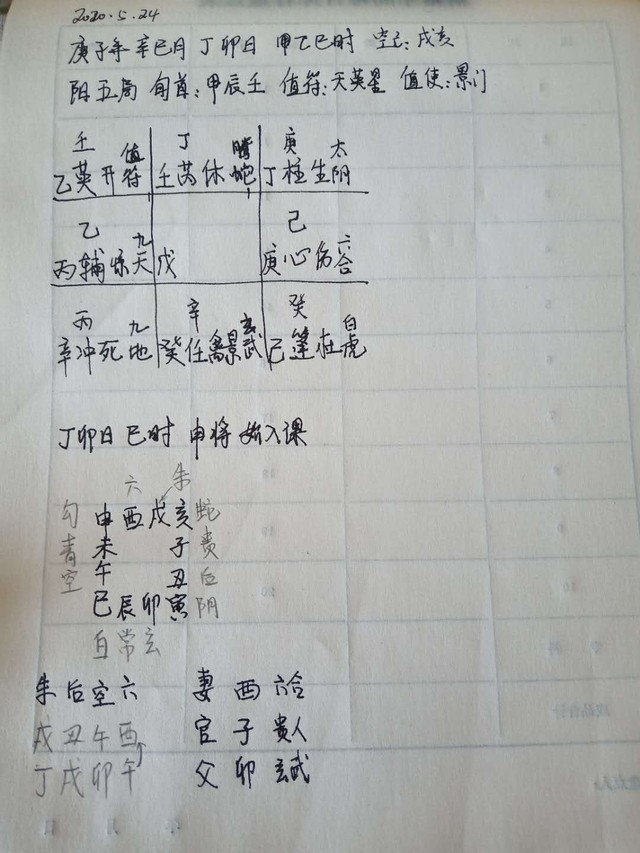 2020.5.24
庚子年 辛巳月 丁卯日 甲乙巳时 空亡:戌亥
阳五局 旬首:甲辰壬 值符:天英星 值使:景门
壬 值 丁 螣 庚 太
乙英开符 壬芮休蛇 丁柱生阴
乙 九 己 六
丙辅惊天 戊 庚心伤合
丙 九 辛 玄 癸 白
辛冲死地 癸任景武 己蓬杜虎
丁卯日 巳时 申将 始入课
六 朱
勾 申酉戌亥 蛇
青 未 子 贵
空 午 丑 后
巳辰卯寅 阴
白常玄
朱后空六 妻 酉 六合
戌丑午酉 官 子 贵人
丁戌卯午 父 卯 玄武